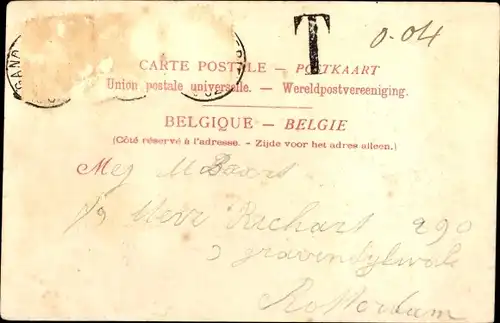 T
0-04
CARTE POSTALE — POSTKAART
Union postale universelle. — Wereldpostvereeniging.
BELGIQUE — BELGIE
(Côté réservé à l'adresse. - Zijde voor het adres alleen.)
Mej M
Herr 290
Rotterdam